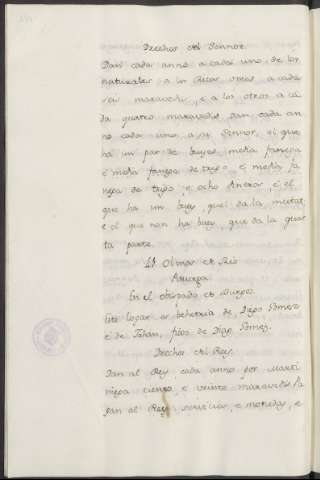 Derechos del Sennor.
Dan cada anno a cada uno de los
naturales a los Ricos omes a cada
seis maravedis, e a los otros a ca
da quatro maravedis, dan cada an
no cada uno a su Sennor, el que
ha un par de bueyes media fanega
e media fanega de trigo e media fa
nega de trigo e ocho dineros, e el
que ha un buey, quel da la mitat
e el que non ha buey, que da la quar
ta parte.
Olmos de Rio
Pisuerga.
En el obispado de Burgos.
Este logar es behetria de Diego Gomez
e de fijos de Diag Gomez.
Derechos del Rey.
Dan al Rey cada anno por Marti
niega ciento e veinte maravedis,
dan al Rey servicios, e monedas, e